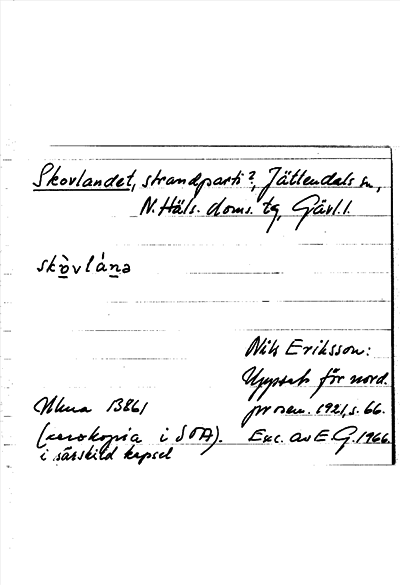 Skovlandet, strandparti?, Jättendals sn,
N. Häls. doms. tg, Gävl. l.
skòvlána
Nils Eriksson:
Uppsats för nord.
prosem. 1921, s. 66.
Exc. av E. G. 1966.
Ulma 13861
(xerokopia i SOA).
i särskild kapsel